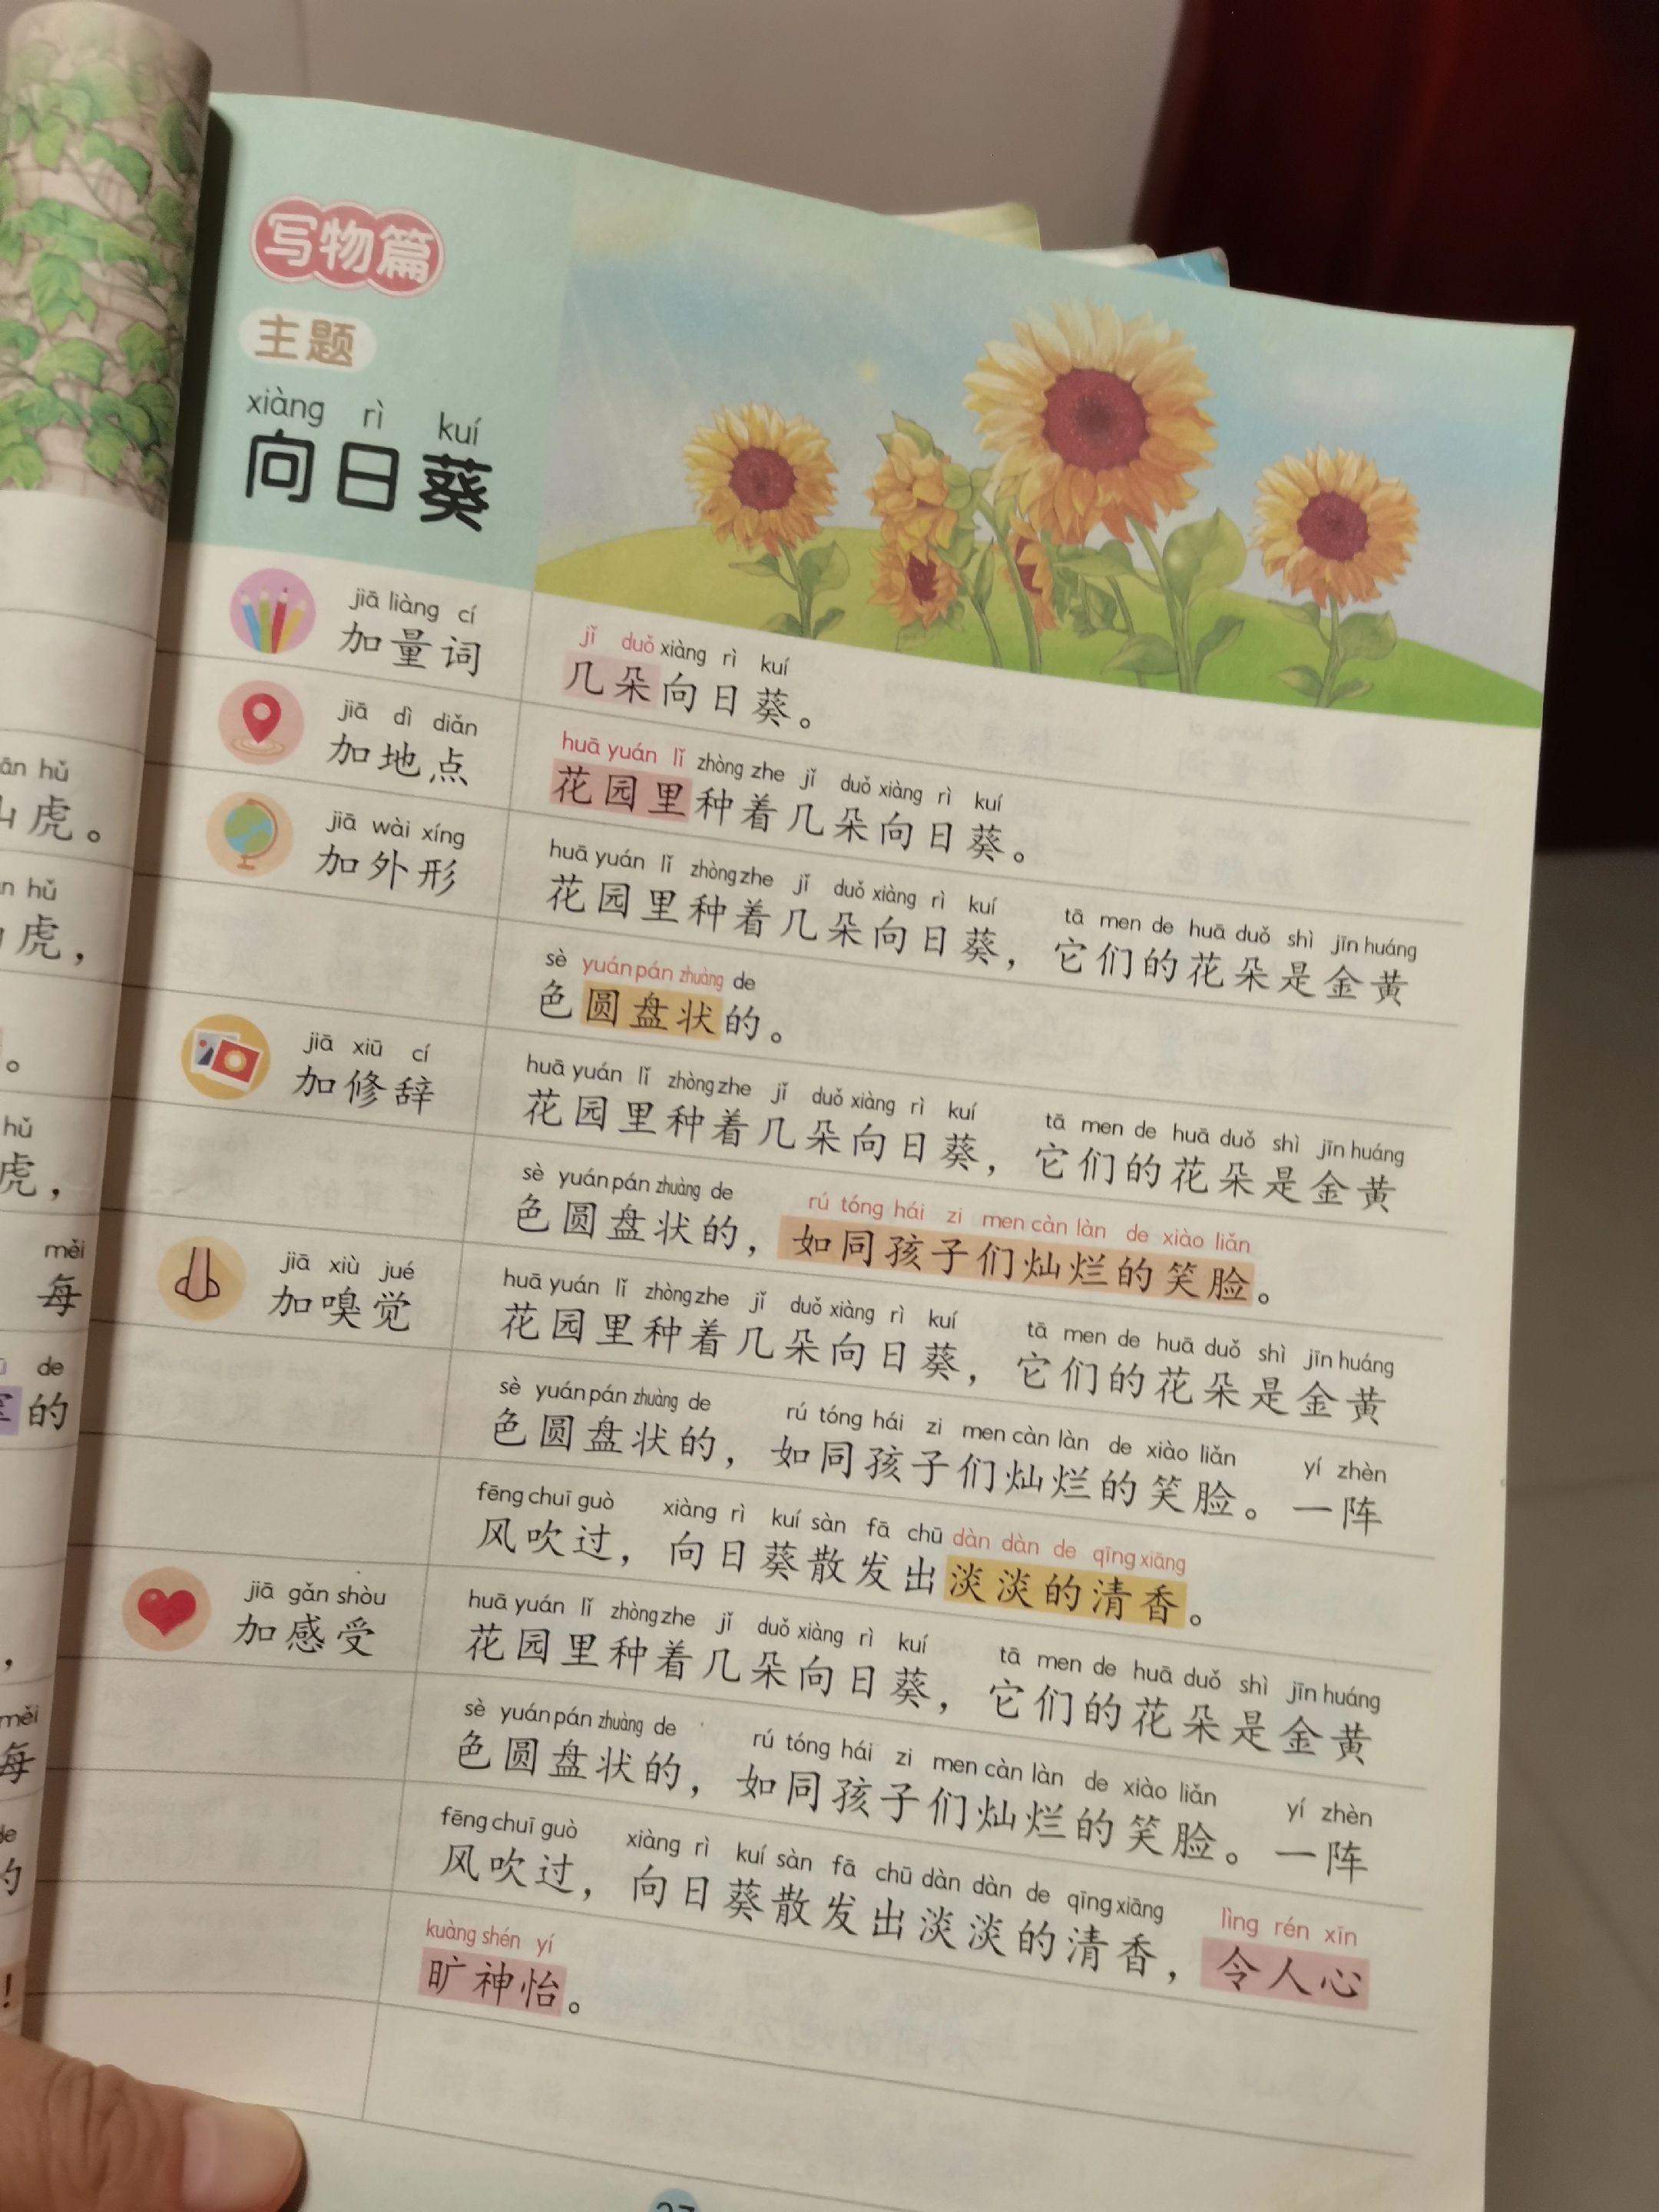 写物篇
主题
xiàng rì kuí
向日葵
jiā liàng cí
加量词
jǐ duǒ xiàng rì kuí
几朵向日葵。
jiā dì diǎn
加地点
huā yuán lǐ zhòng zhe jǐ duǒ xiàng rì kuí
花园里种着几朵向日葵。
jiā wài xíng
加外形
huā yuán lǐ zhòng zhe jǐ duǒ xiàng rì kuí tā men de huā duǒ shì jīn huáng
花园里种着几朵向日葵，它们的花朵是金黄
sè yuán pán zhuàng de
色圆盘状的。
jiā xiū cí
加修辞
huā yuán lǐ zhòng zhe jǐ duǒ xiàng rì kuí tā men de huā duǒ shì jīn huáng
花园里种着几朵向日葵，它们的花朵是金黄
sè yuán pán zhuàng de rú tóng hái zi men càn làn de xiào liǎn
色圆盘状的，如同孩子们灿烂的笑脸。
jiā xiù jué
加嗅觉
huā yuán lǐ zhòng zhe jǐ duǒ xiàng rì kuí tā men de huā duǒ shì jīn huáng
花园里种着几朵向日葵，它们的花朵是金黄
sè yuán pán zhuàng de rú tóng hái zi men càn làn de xiào liǎn yí zhèn
色圆盘状的，如同孩子们灿烂的笑脸。一阵
fēng chuī guò xiàng rì kuí sàn fā chū dàn dàn de qīng xiāng
风吹过，向日葵散发出淡淡的清香。
jiā gǎn shòu
加感受
huā yuán lǐ zhòng zhe jǐ duǒ xiàng rì kuí tā men de huā duǒ shì jīn huáng
花园里种着几朵向日葵，它们的花朵是金黄
sè yuán pán zhuàng de rú tóng hái zi men càn làn de xiào liǎn yí zhèn
色圆盘状的，如同孩子们灿烂的笑脸。一阵
fēng chuī guò xiàng rì kuí sàn fā chū dàn dàn de qīng xiāng lìng rén xīn
风吹过，向日葵散发出淡淡的清香，令人心
kuàng shén yí
旷神怡。